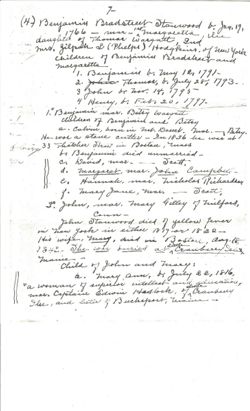 7-
(4) Benjamin Bradstreet Stanwood b. Jan. 19,
1766 - mar. Margaretta,
daughter of Thomas Wargatts, and
Mrs. Elizabeth D (Phelps) Hodgkins, of New York
Children of Benjamin Bradstreet and
Margaretta
1. Benjamin b. May 12, 1791-
2. Thomas, b. July 28, 1793-
3 John b. Nov. 14, 1795
4 Henry, b. Feb. 20, 1797.
1. Benjamin mar. Betsy
Children of Benjamin and Betsy
a. Calvin, born in Mt. Desert, Me.
He was a stone cutter - In 1836 he was at
33 Thatcher Street in Boston, Mass
b. Benjamin died unmarried -
c. David, mar. - Scott.
d. Margaret mar. John Campbell -
e. Hannah, mar. Nicholas Richardson
f. Mary Jane, mar. - Scott,
3. John, mar. Mary Gilley of Milford,
Conn -
John Stanwood died of yellow fever
in New York in either 1819 or 1822 -
His wife, Mary, died in Boston, Aug. 15
1834. She was buried at Cranberry Isle
Maine -
Child of John and Mary:
a. Mary Ann, b. July 22, 1816,
"a woman of superior intellect and education,
mar. Captain Edwin Hadlock, of Cranberry
Isle, and later of Bucksport, Maine -